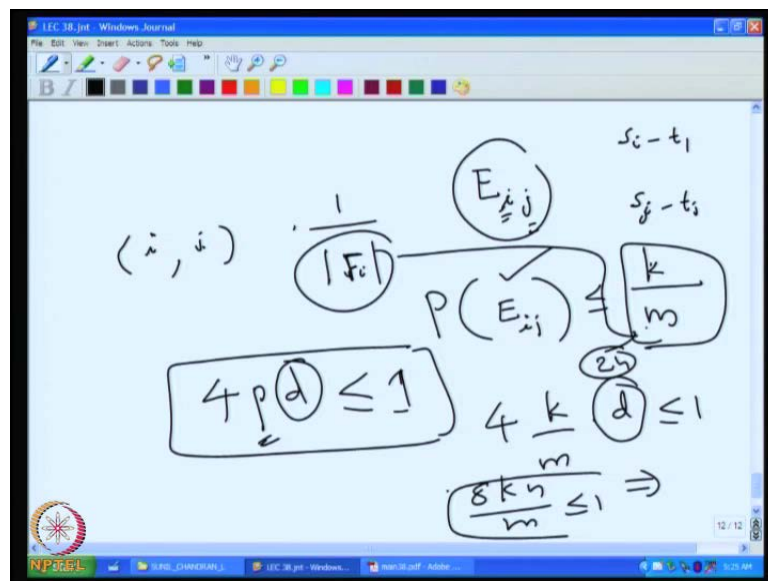 LEC 38.jnt - Windows Journal
File Edit View Insert Actions Tools Help
B I
s_i - t_1
E_{ij}
s_j - t_j
(i, j) 1/|F_i|
P(E_{ij}) ≤ k/m
2n
4pd ≤ 1
4 k/m d ≤ 1
8kn/m ≤ 1 ⇒
12 / 12
NPTEL
SUNIL_CHANDRAN_L
LEC 38.jnt - Windows...
main38.pdf - Adobe ...
5:25 AM